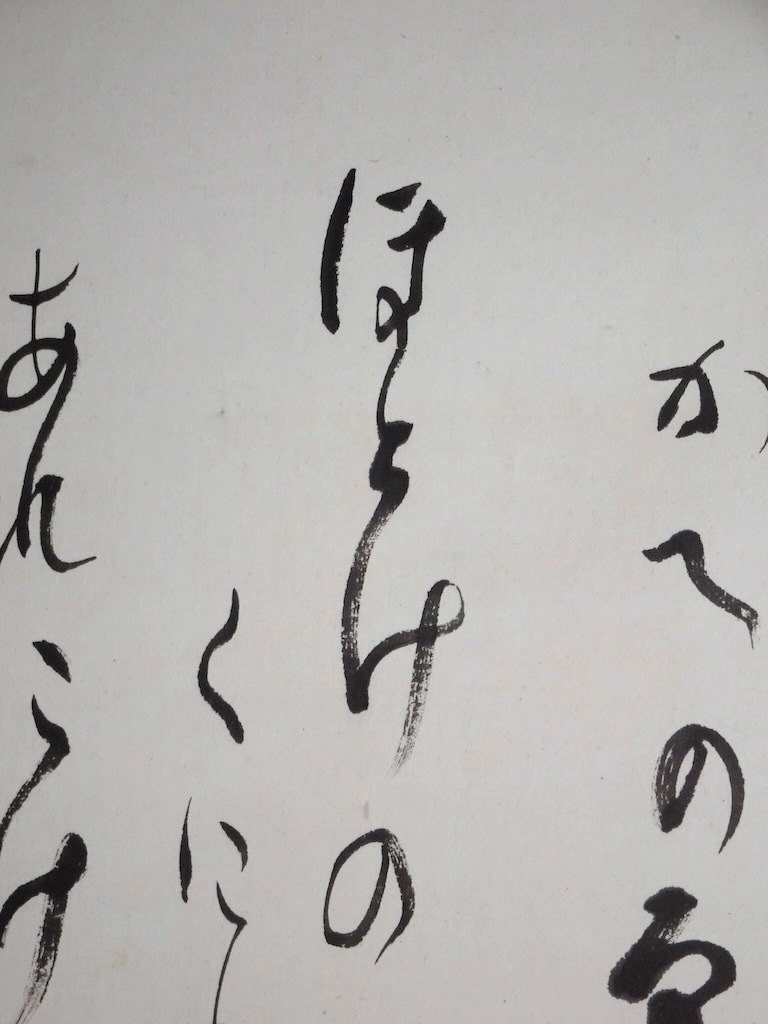 かての
ほとけの
くに
あれこけ